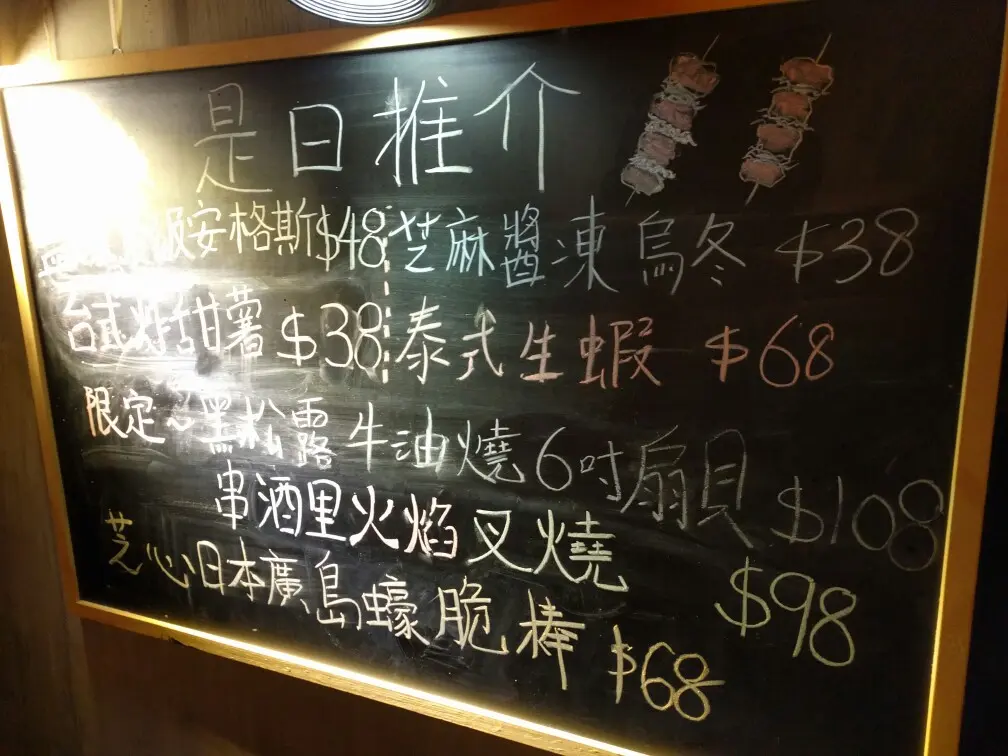 是日推介
級安格斯$48 芝麻醬凍烏冬 $38
台式炸甜薯 $38 泰式生蝦 $68
限定~黑松露牛油燒6吋扇貝 $108
串酒里火焰叉燒 $98
芝心日本廣島蠔脆棒 $68